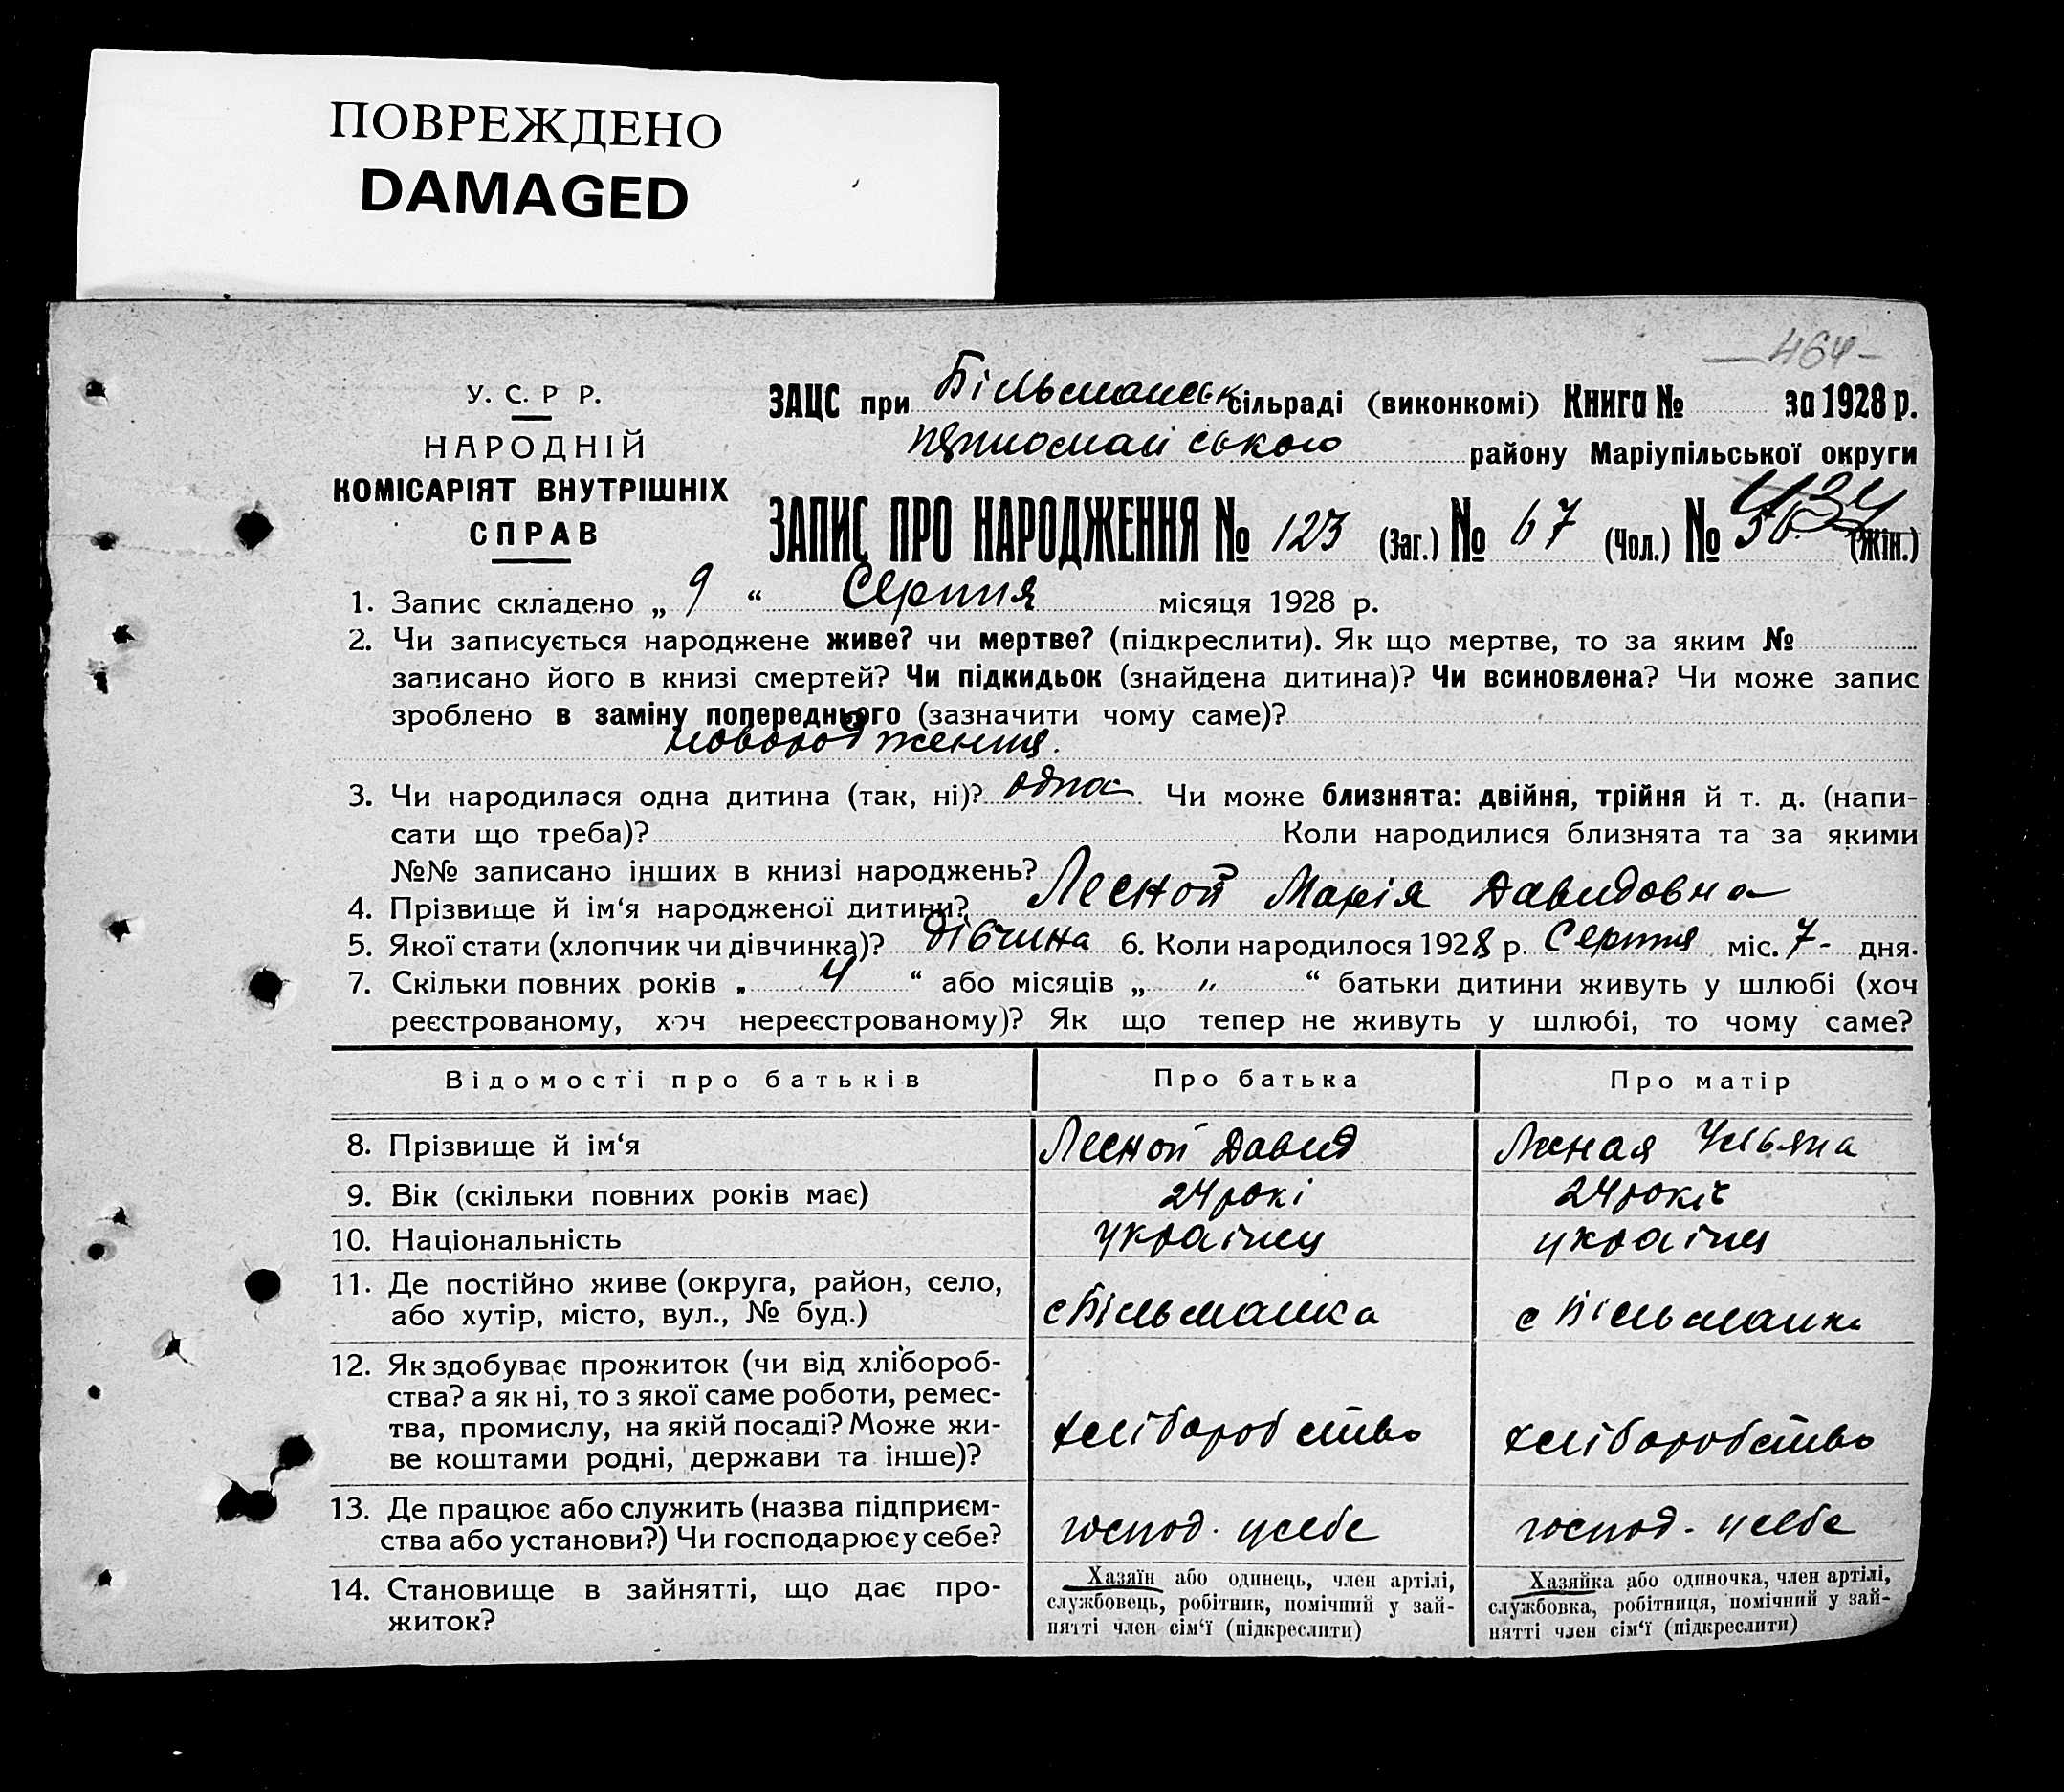 ПОВРЕЖДЕНО
DAMAGED
464
У. С. Р Р.
НАРОДНІЙ
КОМІСАРІЯТ ВНУТРІШНІХ
СПРАВ
ЗАЦС при Більманськ сільраді (виконкомі) Книга № за 1928 р.
району Маріупільської округи
434
ЗАПИС ПРО НАРОДЖЕННЯ № 123 (Заг.) № 67 (Чол.) № 56 (Жін.)
1. Запис складено „ 9 “ Серпня місяця 1928 р.
2. Чи записується народжене живе? чи мертве? (підкреслити). Як що мертве, то за яким №
записано його в книзі смертей? Чи підкидьок (знайдена дитина)? Чи всиновлена? Чи може запис
зроблено в заміну попереднього (зазначити чому саме)?
3. Чи народилася одна дитина (так, ні)? одна Чи може близнята: двійня, трійня й т. д. (напи-
сати що треба)? Коли народилися близнята та за якими
№№ записано інших в книзі народжень?
4. Прізвище й ім‘я народженої дитини? Лесной Марія Давидовна
5. Якої стати (хлопчик чи дівчинка)? дівчина 6. Коли народилося 1928 р. Серпня міс. 7- дня.
7. Скільки повних років „ 4 “ або місяців „ " “ батьки дитини живуть у шлюбі (хоч
реєстрованому, хоч нереєстрованому)? Як що тепер не живуть у шлюбі, то чому саме?
Відомості про батьків Про батька Про матір
8. Прізвище й ім‘я Лесной Давид Лесная Ульяна
9. Вік (скільки повних років має) 24 рокі 24 рокіс
10. Національність українец українец
11. Де постійно живе (округа, район, село,
або хутір, місто, вул., № буд.) с Більманка с Більманка
12. Як здобуває прожиток (чи від хлібороб-
ства? а як ні, то з якої саме роботи, ремес-
тва, промислу, на якій посаді? Може жи-
ве коштами родні, держави та інше)? хліборобство хліборобство
13. Де працює або служить (назва підприєм-
ства або установи?) Чи господарює у себе? господ. у себе господ. у себе
14. Становище в зайнятті, що дає про-
житок?
Хазяїн або одинець, член артілі,
службовець, робітник, помічний у зай-
нятті член сім‘ї (підкреслити)
Хазяйка або одиночка, член артілі,
службовка, робітниця, помічний у зай-
нятті член сім‘ї (підкреслити)